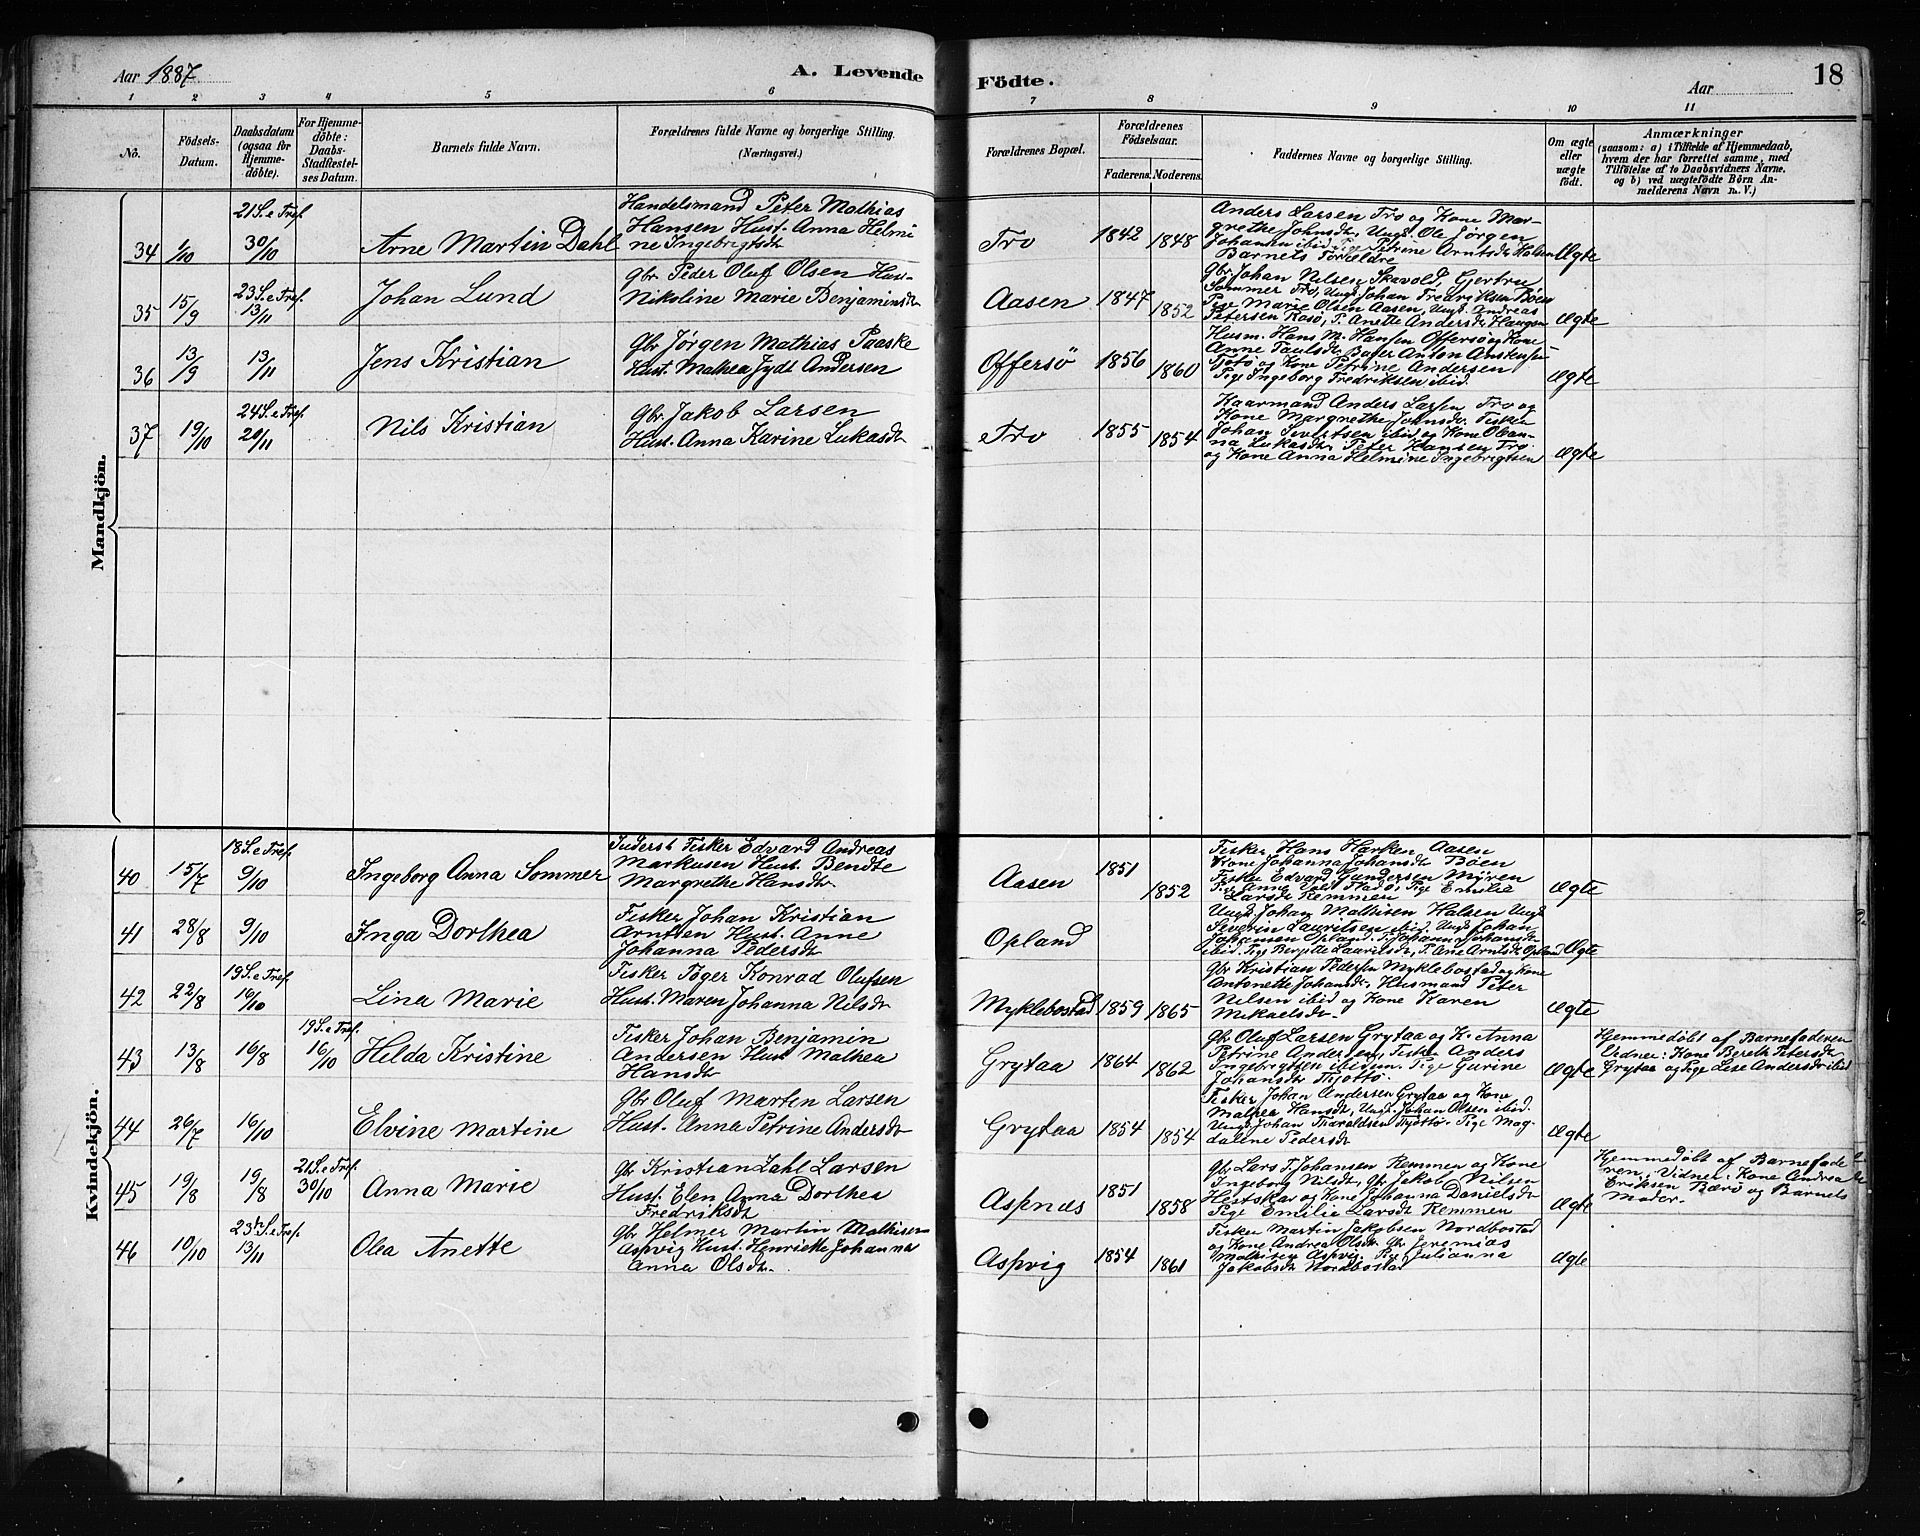 Aar 1887
A. Levende
Födte.
Aar
18
1 2 3 4 5 6 7 8 9 10 11
No.
Födsels-
Datum.
Daabsdatum
(ogsaa for
Hjemme-
döbte).
For Hjemme-
döbte:
Daabs-
Stadfæstel-
ses Datum.
Barnets fulde Navn.
Forældrenes fulde Navne og borgerlige Stilling.
(Næringsvei.)
Forældrenes Bopæl.
Forældrenes
Födselsaar.
Faderens. Moderens.
Faddernes Navne og borgerlige Stilling.
Om ægte
eller
uægte
födt.
Anmærkninger
(saasom: a) i Tilfælde af Hjemmedaab,
hvem der har forrettet samme, med
Tilföielse af to Daabsvidners Navne.
og b) ved uægtefödte Börn An-
melderens Navn m. V.)
Mandkjön.
34 1/10
21 S. e Tref
30/10
Arne Martin Dahl
Handelsmand Peter Mathias
Hansen Hust. Anna Helmi
ne Ingebrigtsdt
Tro
1842 1848
Anders Larsen Tro og Kone Mar-
grethe Johnsdt, Ungk. Ole Jørgen
Johansen ibid Pige Petrine Arntsdt Halsen
Barnets Forældre
Ægte
35 15/9
23 S. e Tref.
13/11
Johan Lund
Gbr. Peder Oluf Olsen Hus-
Nikoline Marie Benjaminsdt
Aasen
1847 1852
Gbr. Johan Nilsen Skavold, Gjertru
Sommer Tro, Ungk. Johan Fredriksen Bøen
Pige Marie Olsen Aasen, Ungk. Andreas
Petersen Rosø, P. Anette Andersdt Haugen
Ægte
36 13/9
13/11
Jens Kristian
Gbr Jørgen Mathias Paaske
Hust. Mathea Jydt Andersen
Offersö
1856 1860
Husm. Hans M. Hansen Offersø og Kone
Anne Paulsdt, Anton
Tjøtø og Kone Petrine Andersen
Pige Ingeborg Fredriksen ibid.
Ægte
37 19/10
24 S. e Tref.
20/11
Nils Kristian
Gbr. Jakob Larsen
Hust. Anna Karine Lukasdt
Tro
1855 1854
Kaarmand Anders Larsen Tro og
Kone Margrethe Johnsdt. Fisker
Johan Sivertsen ibid og Kone Olean-
na Lukasdt, Peter Hansen Tro
og Kone Anna Helmine Ingebrigtsen
Ægte
Kvindekjön.
40 15/7
18 S. e Tref.
9/10
Ingeborg Anna Sommer
Inderst Fisker Edvard Andreas
Markusen Hust. Bendte
Margrethe Hansdt.
Aasen
1851 1852
Fisker Hans Aasen
Kone Johanna Johansdt Bøen
Fisker Edvard Gundersen Myren
Pige Anna, Pige Emilie
Larsdt Remmen
Ægte
41 28/8
9/10
Inga Dorthea
Fisker Johan Kristian
Arntsen Hust. Anne
Johanna Pedersdt
Opland
Ungk. Johan Mathisen Halsen Ungk
Severin Lauritsen ibid. Ungk Johan
Opland. P. Johanna Johansdt
ibid. Pige Bergitte Lauritsdt, P. Ane Arntsdt Opland
Ægte
42 22/8
19 S. e Tref
16/10
Lina Marie
Fisker Tøger Konrad Olufsen
Hust. Maren Johanna Nilsdt
Myklebostad
1859 1865
Gbr Kristian Pedersen Myklebostad og Kone
Antonette Johansdt. Husmand Peter
Nilsen ibid og Kone Karen
Mikaelsdt.
Ægte
43 13/8
16/8
19 S. e Tref.
16/10
Hilda Kristine
Fisker Johan Benjamin
Andersen Hust Mathea
Hansdt
Grytaa
1864 1862
Gbr Oluf Larsen Grytaa og K. Anna
Petrine Andersen, Fisker Anders
Ingebrigtsen ibidem. Pige Gurine
Johansdt Thjøttø.
Ægte
Hjemmedøbt af Barnefaderen
Vidner: Kone Bereth Petersdt
Grytaa og Pige Lese Andersdt ibid
44 26/7
16/10
Elvine Martine
Gbr Oluf Martin Larsen
Hust. Anna Petrine Andersdt
Grytaa
1854 1854
Fisker Johan Andersen Grytaa og Kone
Mathea Hansdt, Ungk. Johan Olsen ibid.
Ungk Johan Haraldsen Tjøttø. Pige Mag-
dalene Pedersdt
Ægte
45 19/8
19/8
21 S. e Tref.
30/10
Anna Marie
Gbr Kristian Zahl Larsen
Hust. Elen Anna Dorthea
Fredriksdt
Aspnæs
1851 1858
Gbr Lars T. Johansen Remmen og Kone
Ingeborg Nilsdt, Gbr Jakob Nilsen
Hestskar og Kone Johanna Danielsdt
Pige Emilie Larsdt Remmen
Ægte
Hjemmedøbt af Barnefade
ren, Vidner: Kone Andrea
Eriksen Bærø og Barnets
Moder.
46 10/10
23de S. e Tref.
13/11
Olea Anette
Gbr Helmer Martin Mathisen
Aspvig Hust. Henriette Johanna
Anna Olsdt.
Aspvig
1854 1861
Fisker Martin Jakobsen Nordbostad
og Kone Andrea Olsdt. Gbr Jeremias
Mathisen Aspvig. Pige Julianna
Jakobsdt Nordbostad
Ægte